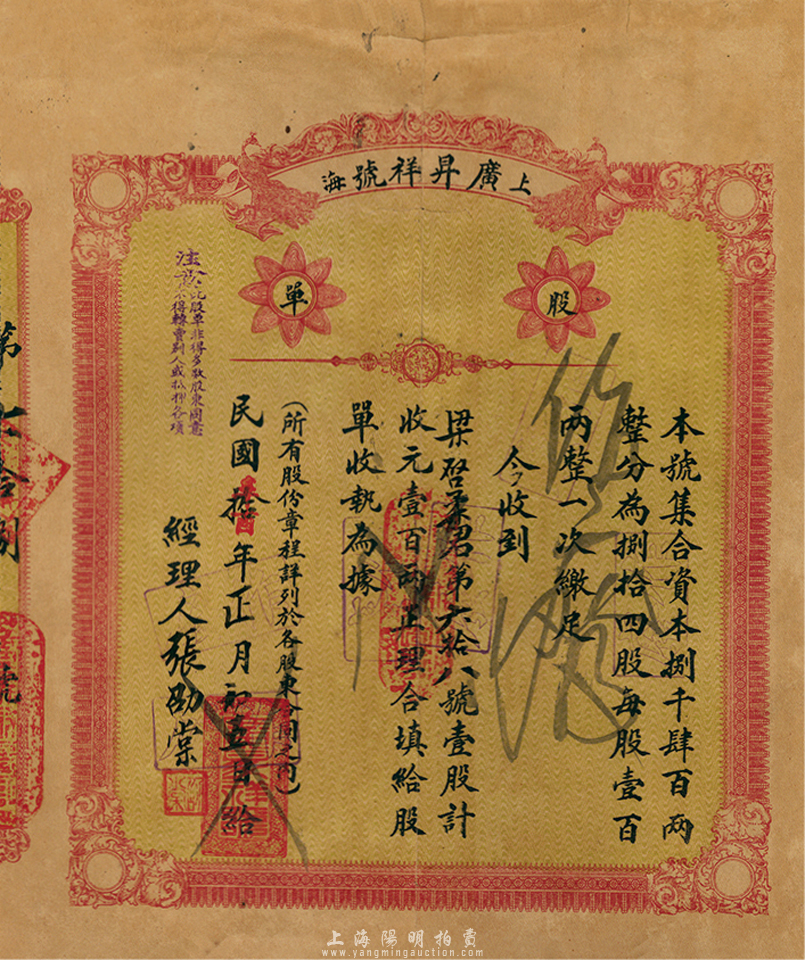 上廣昇祥號海
股單
本號集合資本捌千肆百兩
整分為捌拾四股每股壹百
兩整一次繳足
今收到
梁啓柔君第六拾八號壹股計
收元壹百兩正理合填給股
單收執為據
(所有股份章程詳列於各股東合同之內)
民國拾年正月初五日給
經理人張劭棠
注意此股單非得多數股東同意
不得轉賣別人或抵押各項
作廢
第六拾捌
號
上海陽明拍賣
www.yangmingauction.com